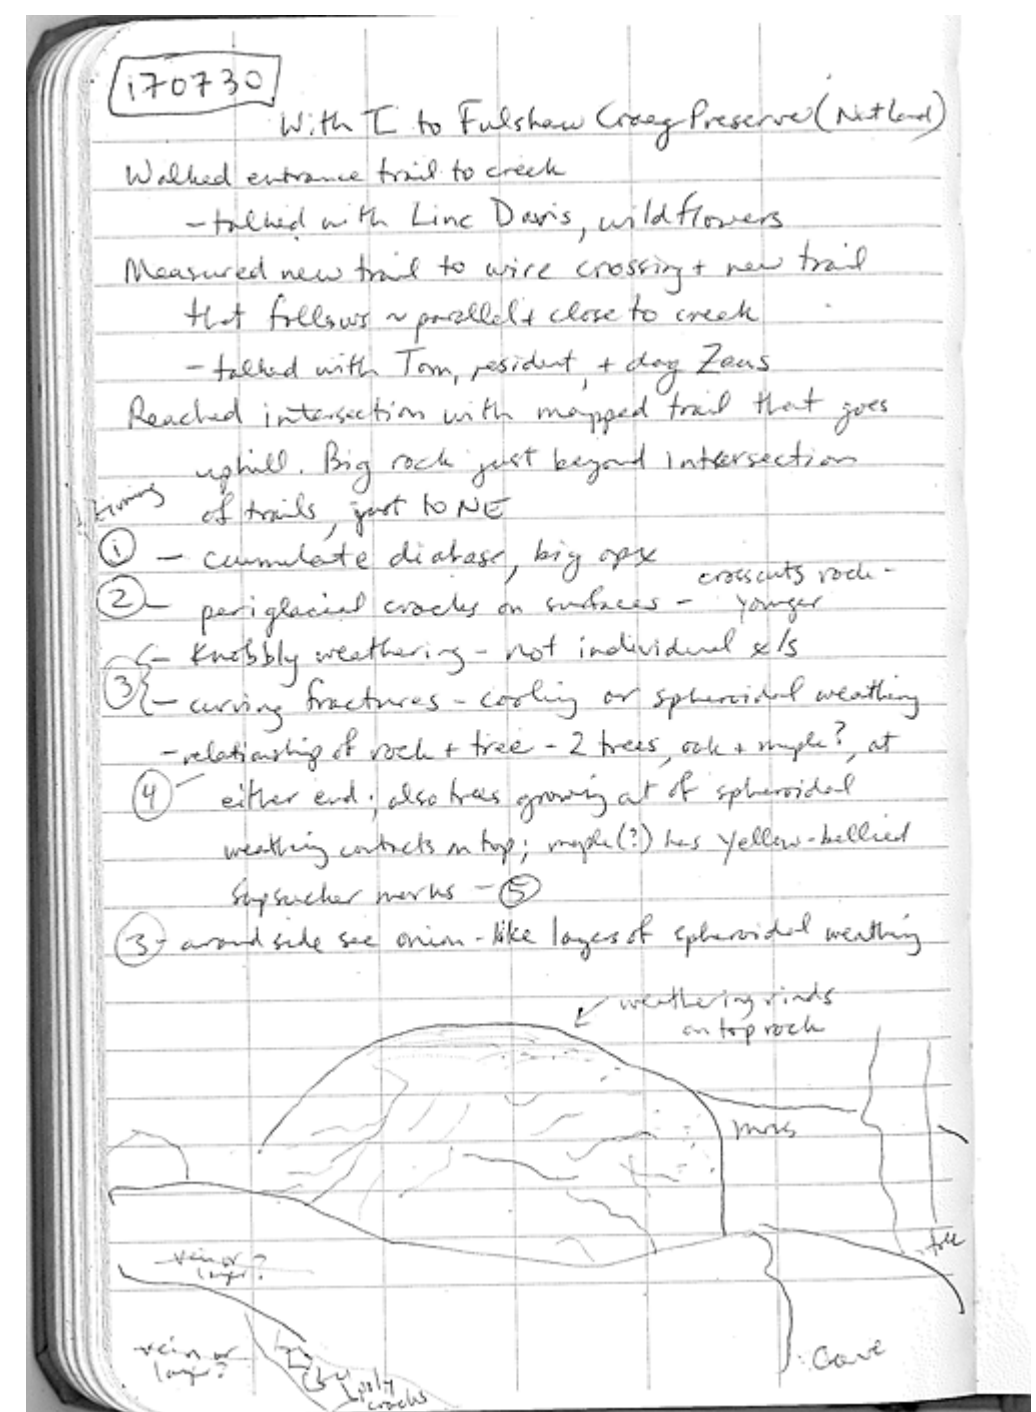 170730
With I to Fulshaw Craeg Preserve (Natland)
Walked entrance trail to creek
- talked with Linc Davis, wildflowers
Measured new trail to wire crossing + new trail
that follows ~ parallel + close to creek
- talked with Tom, resident, + dog Zeus
Reached intersection with mapped trail that goes
uphill. Big rock just beyond intersection
timing
of trails, just to NE
① - cumulate diabase, big opx
② - periglacial cracks on surfaces - crosscuts rock -
younger
- Knobbly weathering - not individual x/s
③ - curving fractures - cooling or spheroidal weathing
- relationship of rock + tree - 2 trees, oak + maple?, at
④ either end; also trees growing out of spheroidal
weathing contacts on top; maple(?) has yellow-bellied
sapsucker marks - ⑤
③ - around side see onion-like layers of spheroidal weathing
weathering rinds
on top rock
moss
tree
vein or
layer?
vein or
layer?
poly
cracks
Cave